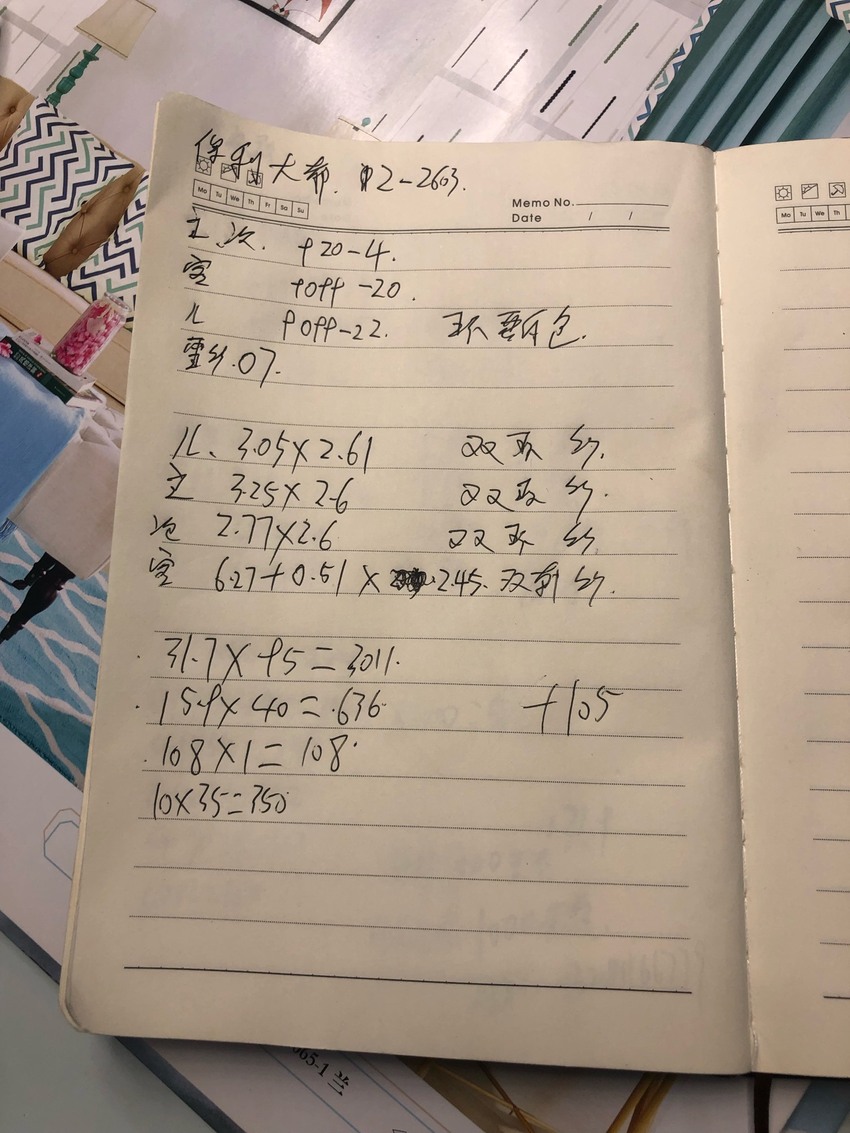 保利大都. 12-2603.
Mo Tu We Th Fr Sa Su
Memo No.
Date / /
主.次. 920-4.
客 -20.
儿 -22.
.07.
儿. 3.05×2.61 双 纱.
主 3.25×2.6 双 纱.
次 2.77×2.6 双 纱
客 6.27+0.51× 2.45. 双 纱.
31.7×95=3011.
15.9×40=636. +105
108×1=108.
10×35=350
Mo Tu We Th
665-1 兰